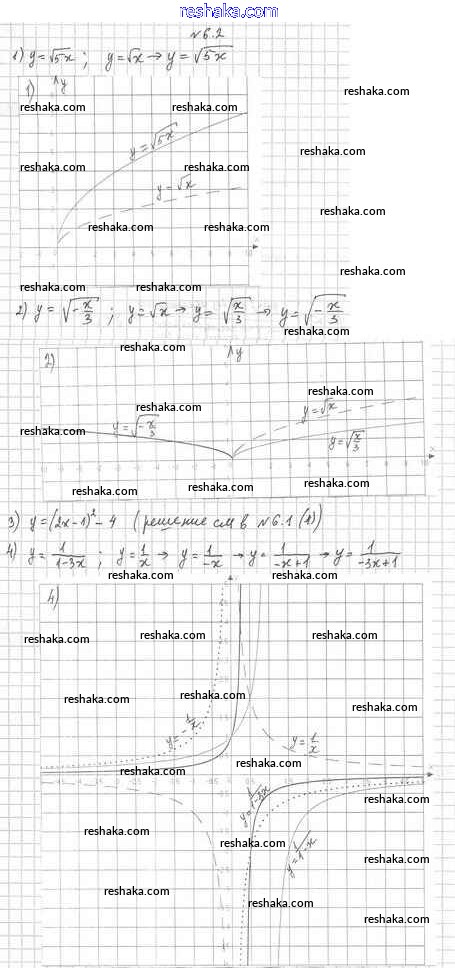 reshaka.com
№6.2
1) y=√5x ; y=√x → y=√5x
reshaka.com
1) y
reshaka.com reshaka.com
y=√5x
reshaka.com
reshaka.com reshaka.com
y=√x
reshaka.com
reshaka.com reshaka.com
x
reshaka.com
reshaka.com reshaka.com
2) y=√(-x/3) ; y=√x → y=√(x/3) → y=√(-x/3)
reshaka.com
reshaka.com
2) y
reshaka.com
y=√x
reshaka.com reshaka.com
y=√(-x/3)
y=√(x/3)
x
reshaka.com reshaka.com
3) y=(2x-1)²-4 (решение см в №6.1(1))
4) y=1/(1-3x) ; y=1/x → y=1/(-x) → y=1/(-x+1) → y=1/(-3x+1)
reshaka.com reshaka.com
4)
reshaka.com reshaka.com reshaka.com
reshaka.com reshaka.com
reshaka.com
y=-1/x
y=1/x
reshaka.com reshaka.com
x
y=1/(1-3x)
reshaka.com
reshaka.com reshaka.com
y=1/(1-x)
reshaka.com
reshaka.com reshaka.com
reshaka.com